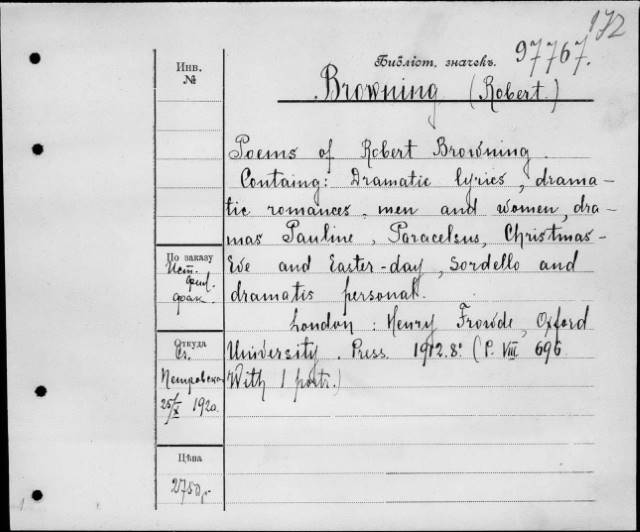 172
Библіот. значекъ. 97767.
Инв. №
Browning (Robert.)
Poems of Robert Browning.
Containg: Dramatic lyrics, drama-
tic romances, men and women, dra-
mas Pauline, Paracelsus, Christmas-
Eve and Easter-day, Sordello and
dramatis personal.
London: Henry Frowde, Oxford
University. Press. 1912. 8° (P. VIII. 696
With 1 portr.)
По заказу
Ист.
фил.
фак.
Откуда
Ст.
Петровско
25/X 1920.
Цѣна
2750 р.